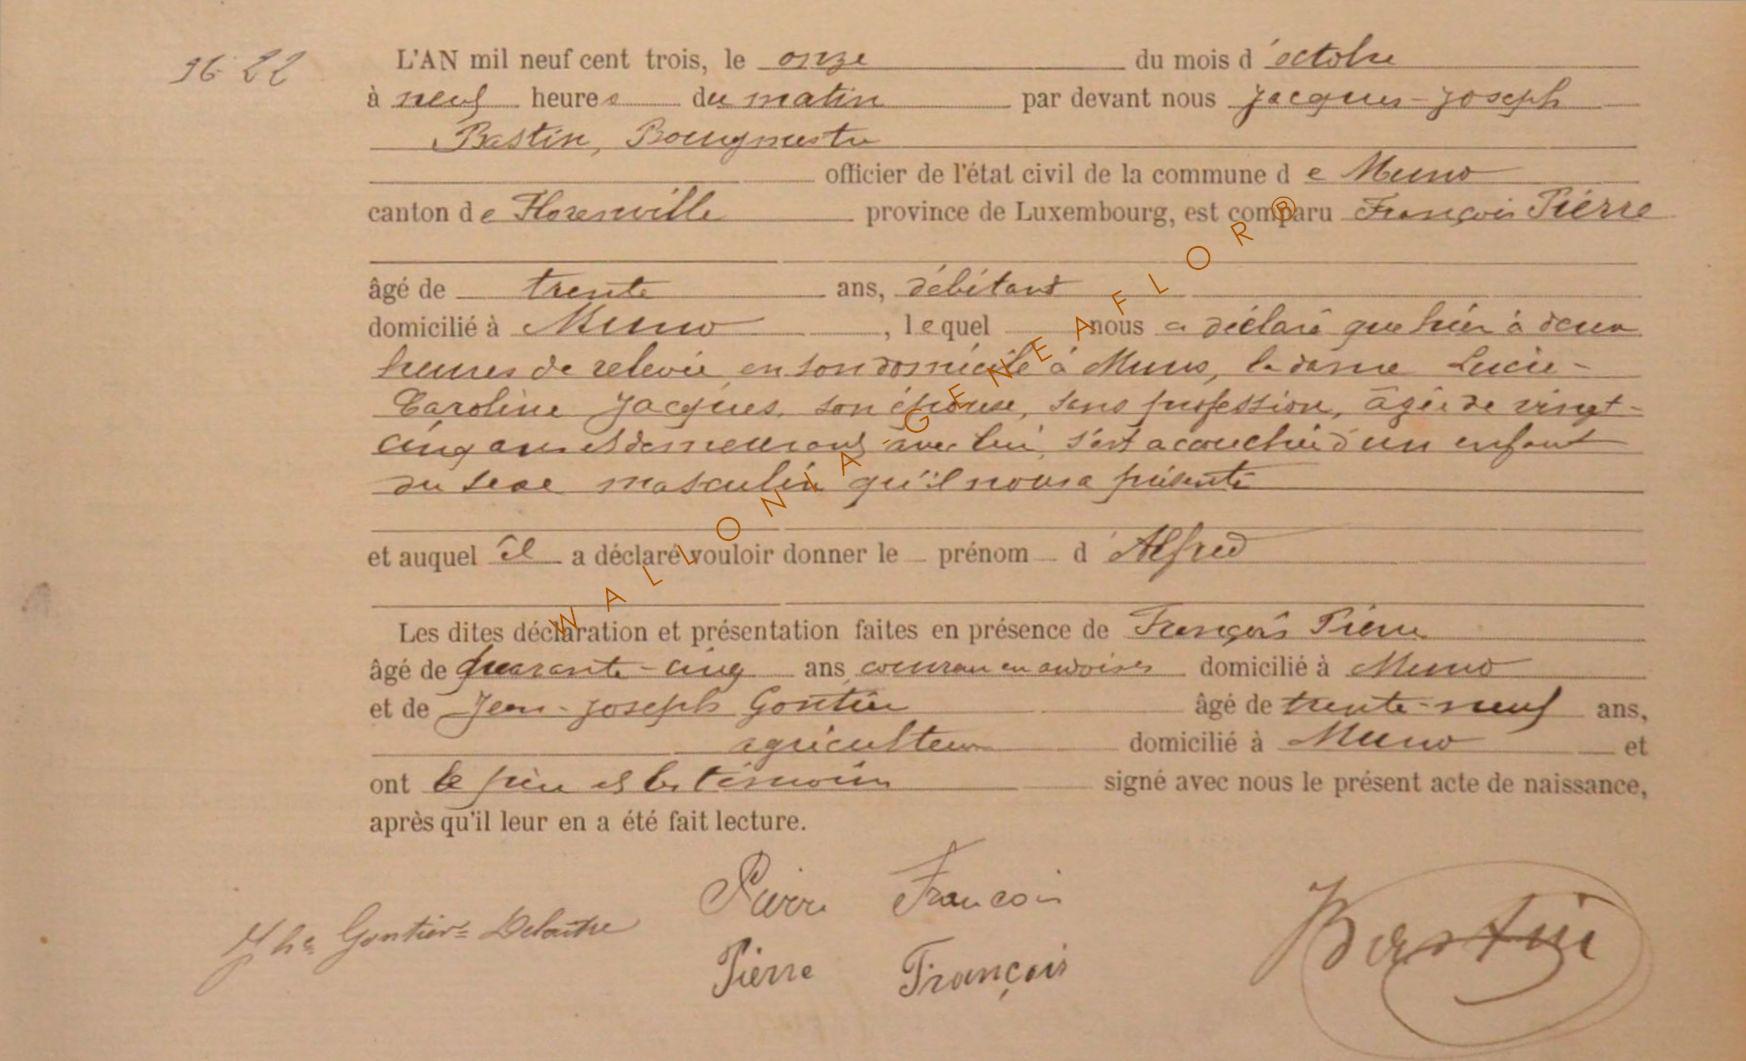 16 22
L'AN mil neuf cent trois, le onze du mois d'octobre
à neuf heures du matin par devant nous Jacques-Joseph
Bastin, Bourgmestre
officier de l'état civil de la commune de Muno
canton de Florenville province de Luxembourg, est comparu François Pierre
âgé de trente ans, débitant
domicilié à Muno, lequel nous a déclaré que hier à deux
heures de relevée, en son domicile à Muno, la dame Lucie-
Caroline Jacques, son épouse, sans profession, âgée de vingt-
cinq ans et demeurant avec lui, s'est acouchée d'un enfant
du sexe masculin qu'il nous a présenté
et auquel il a déclaré vouloir donner le prénom d'Alfred
Les dites déclaration et présentation faites en présence de François Pierre
âgé de quarante-cinq ans couvreur en ardoises domicilié à Muno
et de Jean-Joseph Gontier âgé de trente-neuf ans,
agriculteur domicilié à Muno et
ont le père et les témoins signé avec nous le présent acte de naissance,
après qu'il leur en a été fait lecture.
Pierre Francois
Gontier-Delaitre
Pierre François
Bastin
WALLONIA-GENEAFLOR®